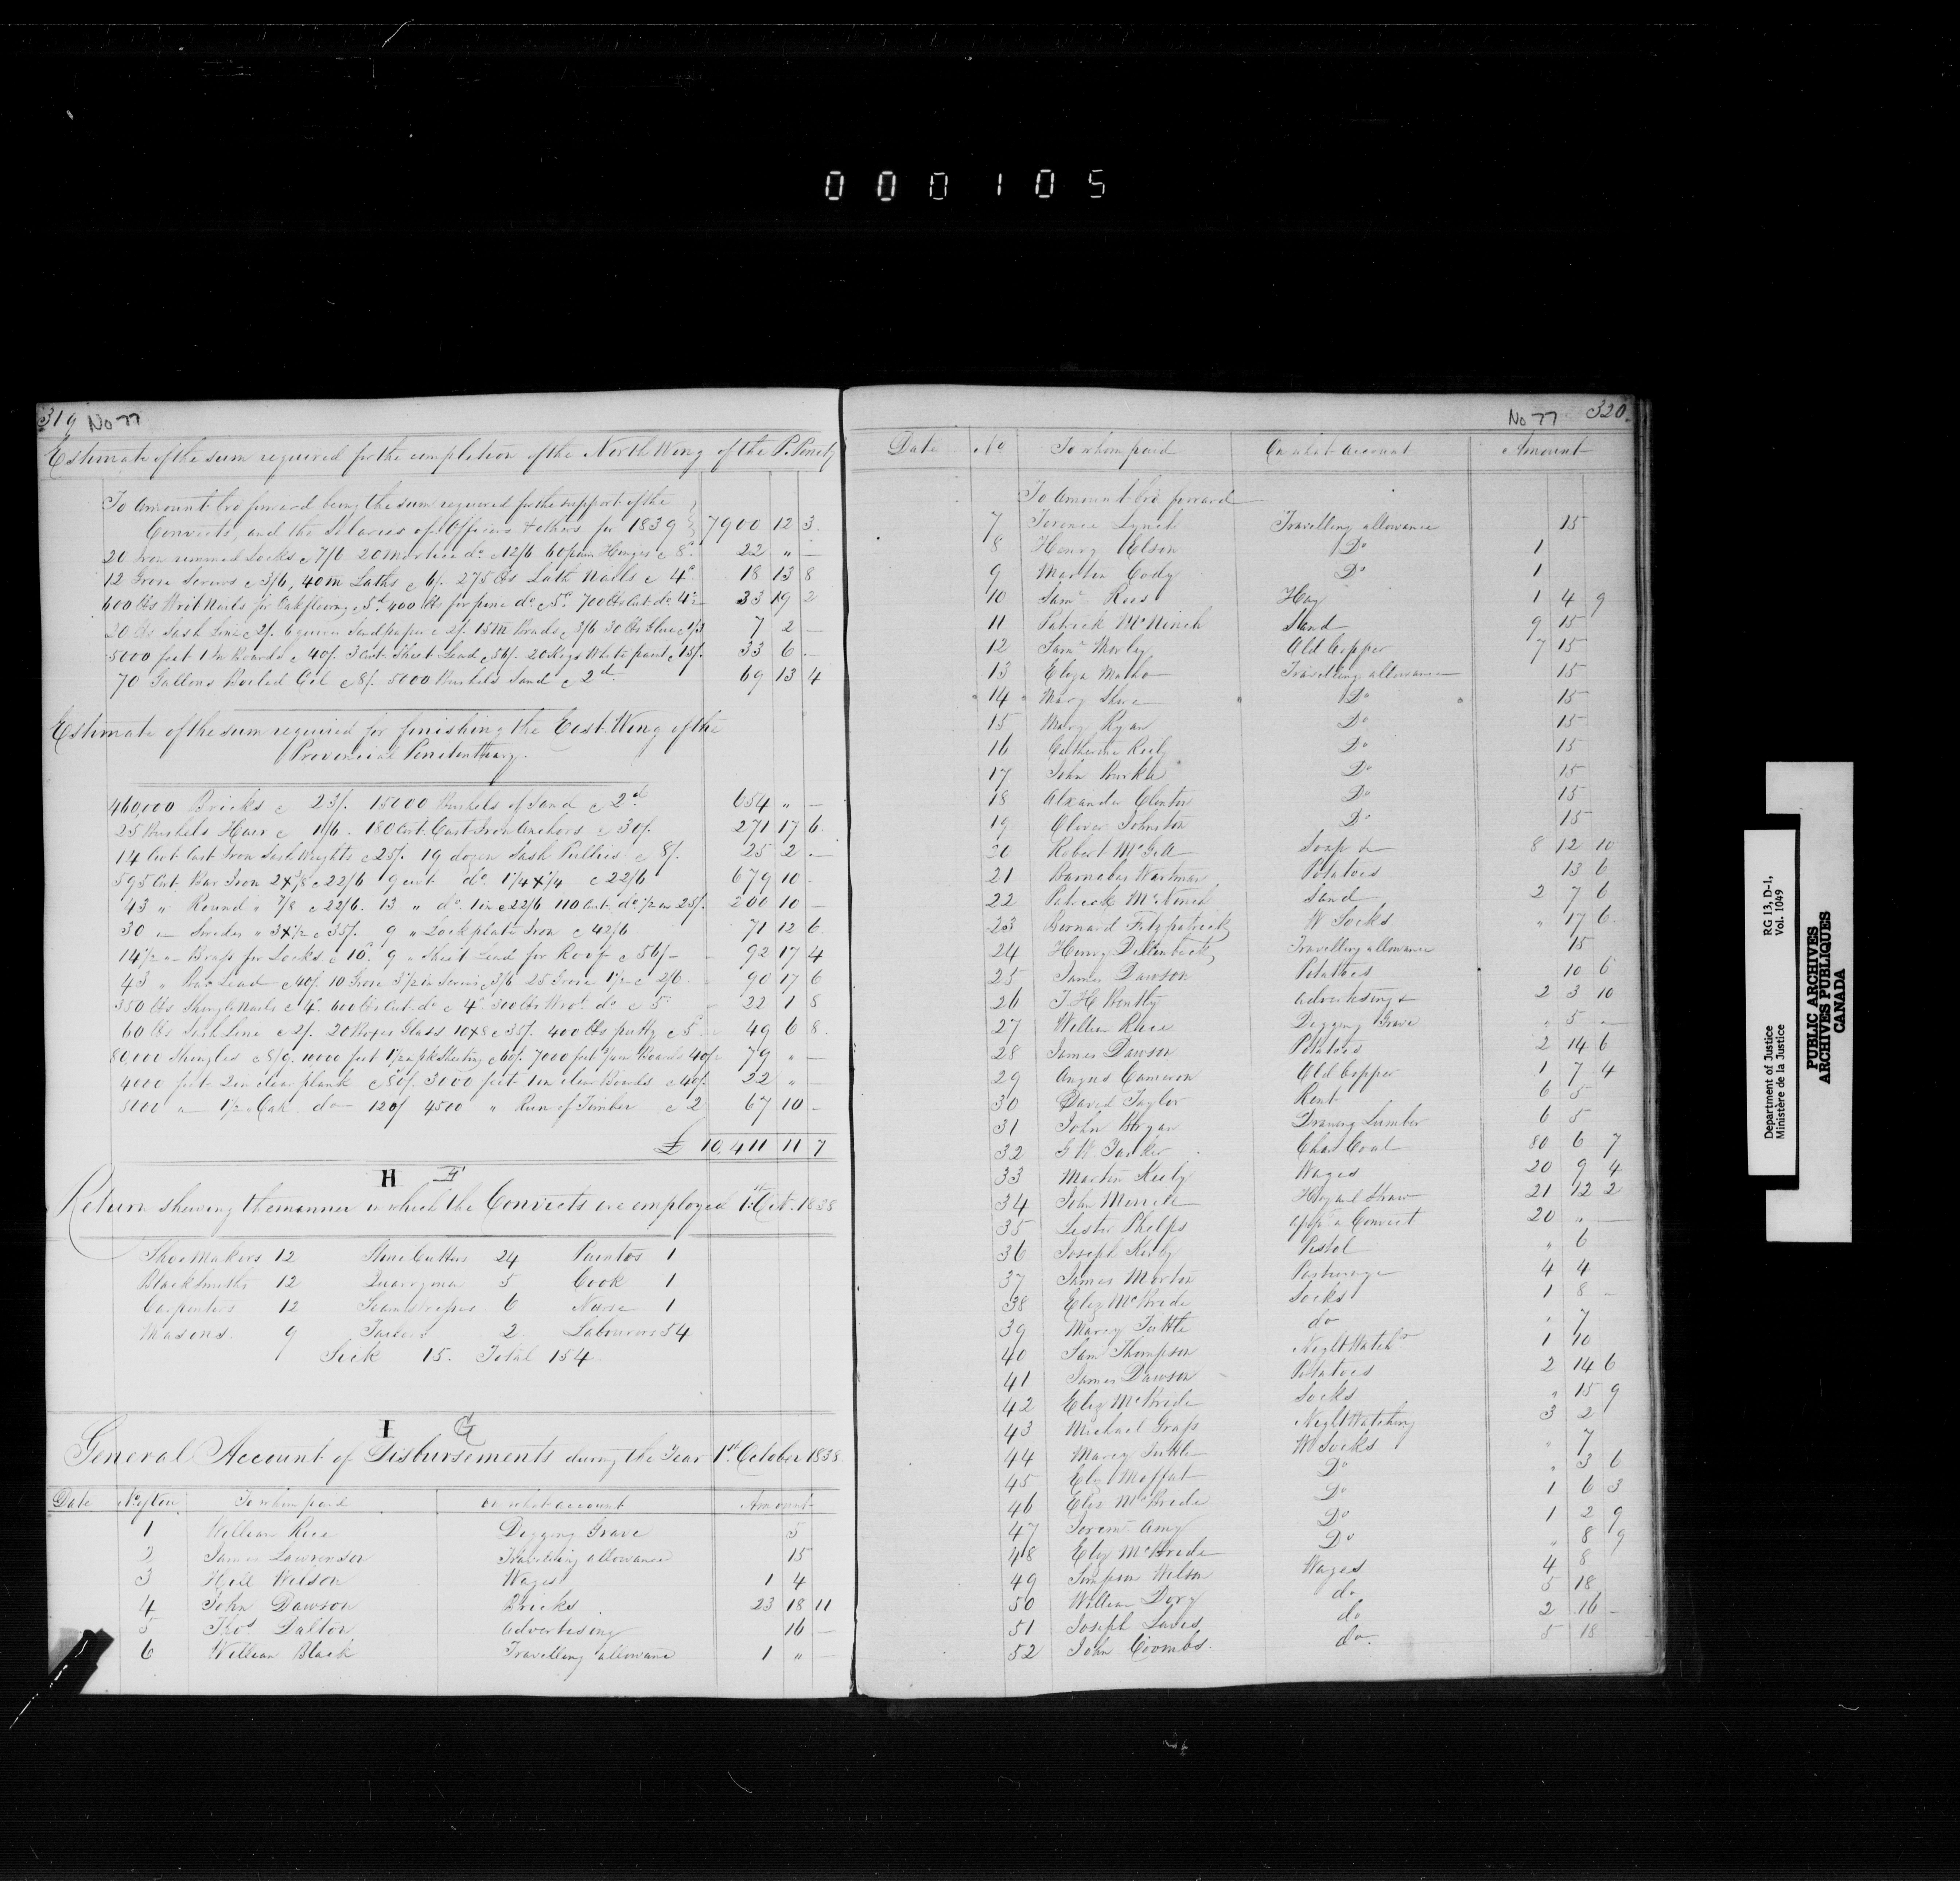 0 0 0 1 0 5
319 No 77
Estimate of the sum required for the completion of the North Wing of the P. Penity
To Amount bro forward being the sum required for the support of the
Convicts, and the Salaries of Officers & others for 1839 7900 12 3
20 Iron rimmed Locks @ 7/6 20 Mortice do @ 12/6 60 pair Hinges @ 8d 22 " —
12 Grose Screws @ 3/6, 40 m Laths @ 6/. 275 lbs Lath Nails @ 4d 18 13 8
600 lbs Wrot Nails for Oak flooring @ 5d 400 lbs for pine do @ 5d 700 lbs Cut do 4d 33 19 2
20 lbs Sash Line @ 2/. 6 quires Sandpaper @ 2/. 15 m Brads @ 3/6 30 lbs Glue @ 1/3 7 2 —
5000 feet 1 In Boards @ 40/. 3 Cwt Sheet Lead @ 56/. 20 Kegs White paint @ 15/. 33 6 —
70 Gallons Boiled Oil @ 8/. 5000 Bushels Sand @ 2d 69 13 4
Estimate of the sum required for finishing the East Wing of the
Provincial Penitentiary.
460,000 Bricks @ 23/. 15000 Bushels of Sand @ 2d 654 " —
25 Bushels Hair @ 1/6. 180 Cwt. Cast Iron Anchors @ 30/. 271 17 6
14 Cwt Cast Iron Sash Weights @ 25/. 19 dozen Sash Pullies @ 8/. 25 2 —
595 Cwt. Bar Iron 2 x 5/8 @ 22/6 9 cwt do 1 1/4 x 1/4 @ 22/6 679 10 —
43 " Round " 7/8 @ 22/6. 13 " do 1 in @ 22/6 110 Cwt. do 1/2 in 25/. 200 10 —
30 " Swedes " 3 x 1/2 @ 35/. 9 " Lockplate Iron @ 42/6 71 12 6
14 1/2 " Brass for Locks @ 10d. 9 " Sheet Lead for Roof @ 56/ 92 17 4
43 " Bar Lead @ 40/. 10 Grose 3 1/2 in Screws 3/6 25 Grose 1 1/2 @ 2/6 90 17 6
350 lbs Shingle Nails @ 4d. 600 lbs Cut do @ 4d. 300 lbs Wrot do @ 5d 22 1 8
60 lbs Sash Line @ 2/. 20 Boxes Glass 10 x 8 @ 35/. 400 lbs putty @ 5d 49 6 8
80,000 Shingles @ 8/9. 10000 feet 1 1/2 in plk Sheeting @ 60/. 7000 feet 1 in Boards 40/. 79 " —
4000 feet 2 in clear plank @ 80/. 3000 feet 1 in clear Boards @ 40/. 22 " —
5000 " 1 1/2 Oak do 120/ 4500 " Run of Timber @ 2 67 10 —
£ 10,411 11 7
H F
Return shewing the manner in which the Convicts are employed 1st Oct. 1838
Shoe Makers 12 Stone Cutters 24 Painters 1
Blacksmiths 12 Quarrymen 5 Cook 1
Carpenters 12 Seamstresses 6 Nurse 1
Masons 9 Tailors 2 Labourers 54
Sick 15. Total 154
I G
General Account of Disbursements during the Year 1st October 1838
Date To whom paid on what account Amount
1 William Rice Digging Grave 5
2 James Lawrenson Travelling allowance 15
3 Hill Wilson Wages 1 4
4 John Dawson Bricks 23 18 11
5 Thos Dalton Advertising 16 —
6 William Black Travelling allowance 1 " —
No 77 320.
Date No To whom paid On what account Amount
To Amount bro forward
7 Terence Lynch Travelling allowance 15
8 Henry Elson Do 1
9 Martin Cody Do 1
10 Saml Rees Hay 1 4 9
11 Patrick McNinch Sand 9 15
12 Saml Morley Old Copper 7 15
13 Eliza Travelling allowance 15
14 Mary Do 15
15 Mary Ryan Do 15
16 Catherine Reily Do 15
17 John Burke Do 15
18 Alxander Clinton Do 15
19 Oliver Johnston Do 15
20 Robert McGill Soap & 8 12 10
21 Barnabas Wartman Potatoes 13 6
22 Patrick McNinch Sand 2 7 6
23 Bernard Fitzpatrick W Socks " 17 6
24 Henry Dellenbeck Travelling allowance 15
25 James Dawson Potatoes 10 6
26 T. H. Bently advertising & 2 3 10
27 William Rice Digging Grave " 5 —
28 James Dawson Potatoes 2 14 6
29 Angus Cameron Old Copper 1 7 4
30 David Taylor Rent 6 5
31 John Bryan Drawing Lumber 6 5
32 G W Char Coal 80 6 7
33 Martin Keely Wages 20 9 4
34 John Merrill Hay and Straw 21 12 2
35 Lester Phelps app. a Convict 20 " —
36 Joseph Kirby Pistol " 6
37 James Morton Pasturage 4 4
38 Eliz McBride Socks 1 8 —
39 Marcy Tuttle do " 7
40 Saml Thompson Night Watch 1 10
41 James Dawson Potatoes 2 14 6
42 Eliz McBride Socks " 15 9
43 Michael Grass Night Watching 3 2
44 Marcy Tuttle W Socks " 7
45 Eliz Moffat Do " 3 6
46 Eliz McBride Do 1 6 3
47 Jerem. Amy Do 1 2 9
48 Eliz McBride Do " 8 9
49 Simpson Wilson Wages 4 8
50 William Dory do 5 18
51 Joseph Lewis do 2 16 —
52 John Coombs do 5 18
Department of Justice
Ministère de la Justice
RG 13, D-1,
Vol. 1049
PUBLIC ARCHIVES
ARCHIVES PUBLIQUES
CANADA